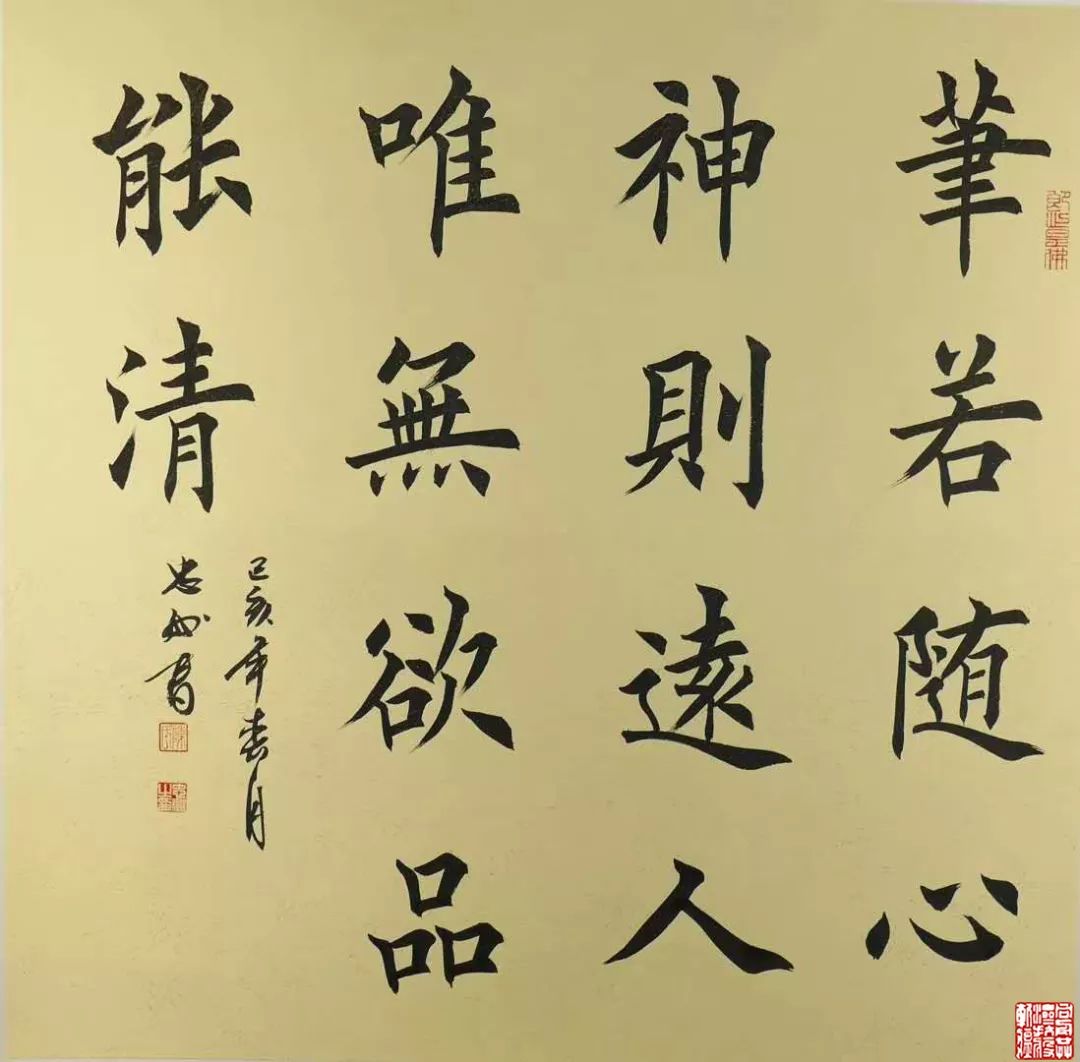 筆若随心
神則遠人
唯無欲品
能清
己亥年春月
忠州書